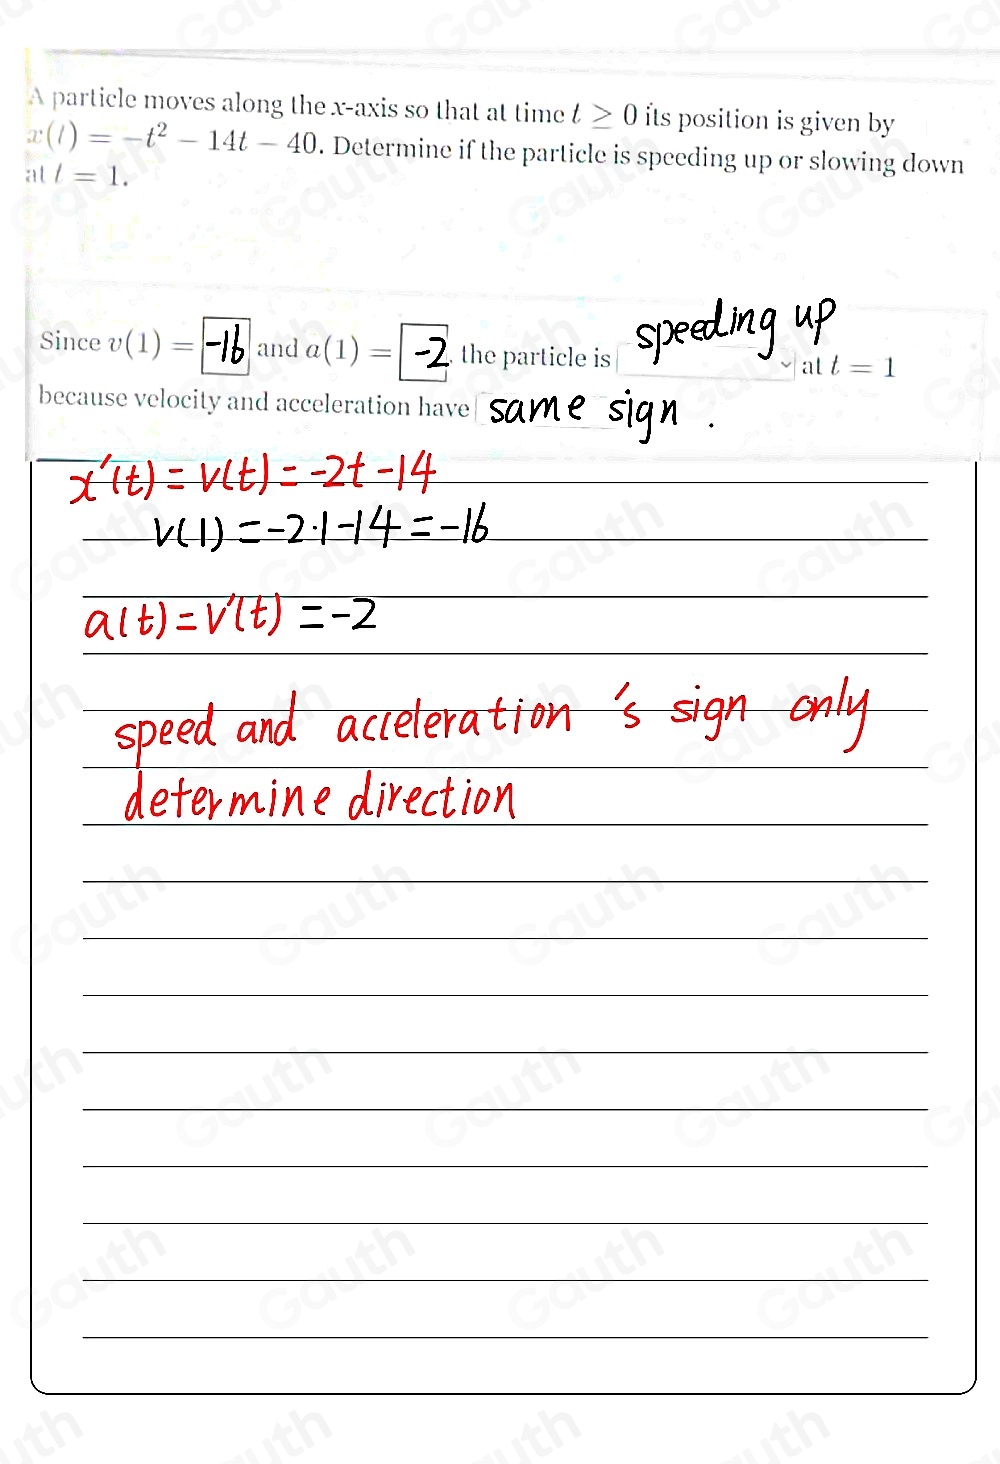 A particle moves along the x-axis so that at time t ≥ 0 its position is given by
x(t) = −t² − 14t − 40. Determine if the particle is speeding up or slowing down
at t = 1.
Since v(1) = -16 and a(1) = -2, the particle is speeding up at t = 1
because velocity and acceleration have same sign .
x'(t) = v(t) = -2t -14
v(1) = -2·1 -14 = -16
a(t) = v'(t) = -2
speed and acceleration 's sign only
determine direction